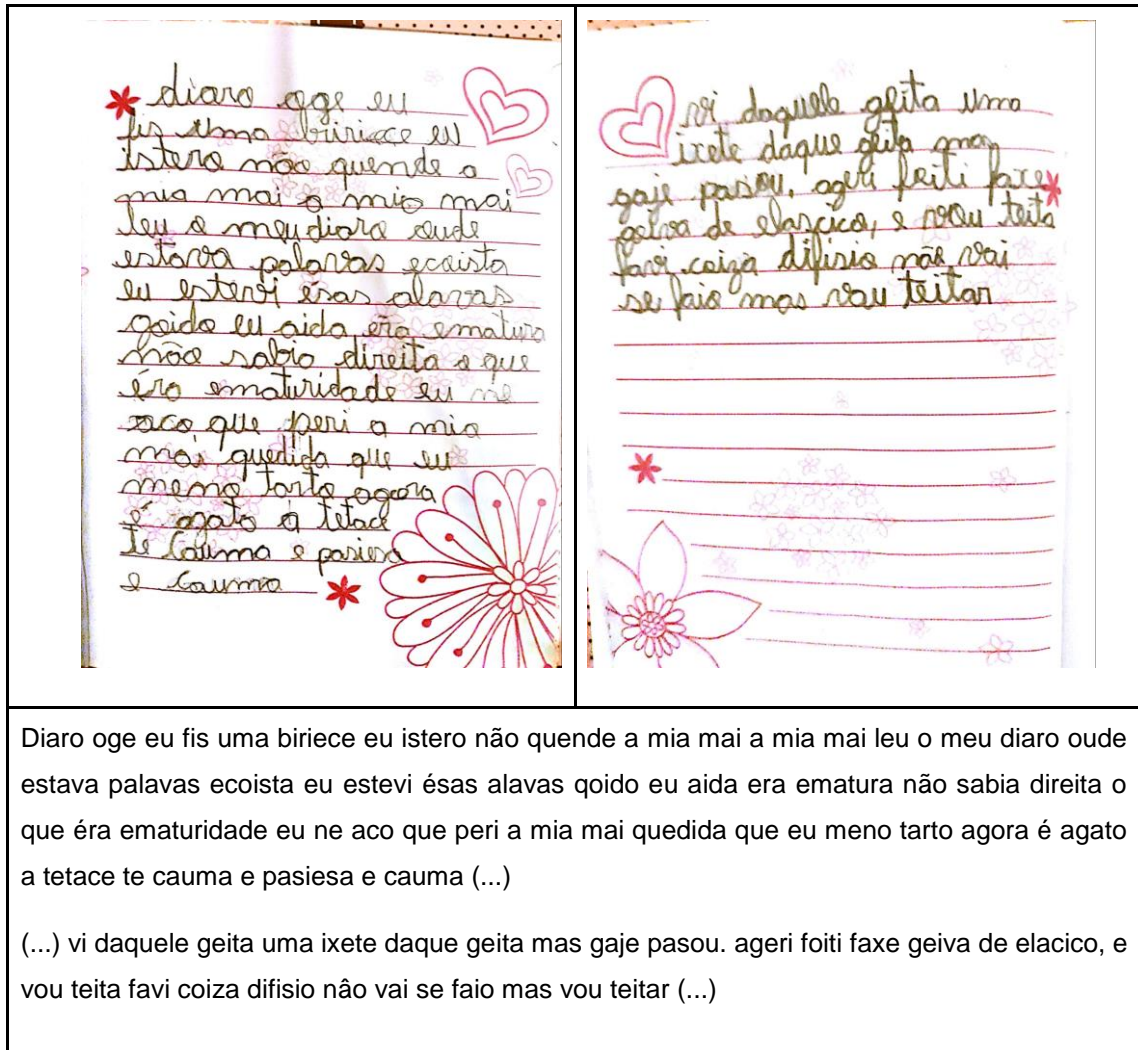 diaro oge eu
fis uma biriece eu
istero não quende a
mia mai a mia mai
leu o meu diaro oude
estava palavas ecoista
eu estevi ésas alavas
qoido eu aida era ematura
não sabia direita o que
éra ematuridade eu ne
aco que peri a mia
mai quedida que eu
meno tarto agora
é agato a tetace
te cauma e pasiesa
e cauma
vi daquele geita uma
ixete daque geita mas
gaje pasou. ageri foiti faxe
geiva de elascico, e vou teita
favi coiza difisio não vai
se faio mas vou teitar
Diaro oge eu fis uma biriece eu istero não quende a mia mai a mia mai leu o meu diaro oude
estava palavas ecoista eu estevi ésas alavas qoido eu aida era ematura não sabia direita o
que éra ematuridade eu ne aco que peri a mia mai quedida que eu meno tarto agora é agato
a tetace te cauma e pasiesa e cauma (...)
(...) vi daquele geita uma ixete daque geita mas gaje pasou. ageri foiti faxe geiva de elacico, e
vou teita favi coiza difisio nâo vai se faio mas vou teitar (...)